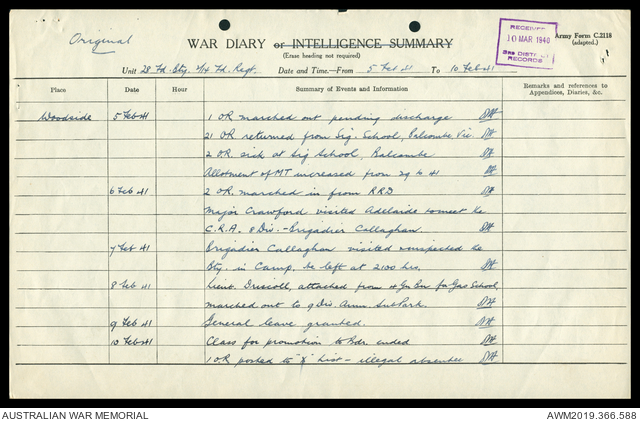 Original
WAR DIARY or INTELLIGENCE SUMMARY
(Erase heading not required)
RECEIVED
10 MAR 1940
3RD DISTRICT
RECORDS
Army Form C.2118
(adapted.)
Unit 28 Fd. Bty. 2/14 Fd. Regt. Date and Time—From 5 Feb 41 To 10 Feb 41
Place Date Hour Summary of Events and Information Remarks and references to
Appendices, Diaries, &c.
Woodside 5 Feb 41 1 OR marched out pending discharge
21 OR returned from Sig. School, Balcombe Vic.
2 OR. sick at Sig School, Balcombe
Allotment of MT increased from 29 to 41
6 Feb 41 2 OR. marched in from RRD
Major Crawford visited Adelaide to meet the
C.R.A. 8 Div. - Brigadier Callaghan.
7 Feb 41 Brigadier Callaghan visited & inspected the
Bty. in Camp. He left at 2100 hrs.
8 Feb 41 Lieut. Driscoll, attached from 4 Gn Bn for Gas School,
marched out to 9 Div. Amm. Sub Park.
9 Feb 41 General leave granted.
10 Feb 41 Class for promotion to Bdr. ended
1 OR posted to "X" List - illegal absentee
AUSTRALIAN WAR MEMORIAL AWM2019.366.588